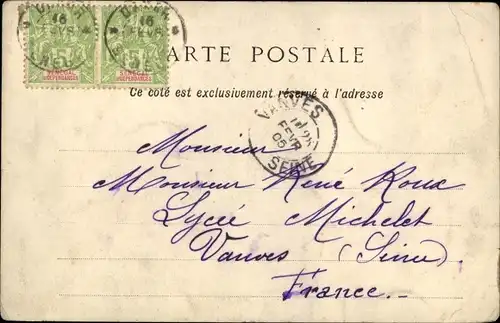 16
FEVR
16
FEVR
5
SENEGAL
ET DÉPENDANCES
5
SENEGAL
ET DÉPENDANCES
CARTE POSTALE
Ce côté est exclusivement réservé à l'adresse
VANVES
FEVR
05
SEINE
Monsieur
Monsieur René Roux
Lycée Michelet
Vanves (Seine)
France.